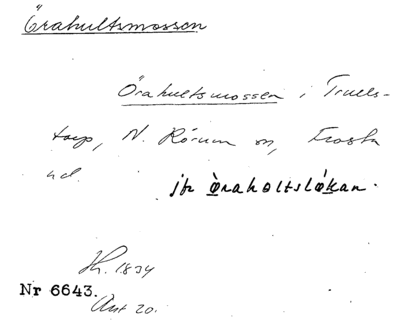 Örahultsmossen
Örahultsmossen i Trulls-
torp, N. Rörum sn, Frosta
hd.
jfr òraholtsló̱kan.
Hk. 1834
Nr 6643.
Ant 20.